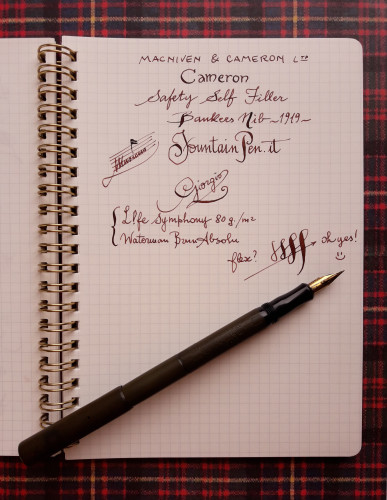 MACNIVEN & CAMERON LTD
Cameron
Safety Self Filler
Bankers Nib ~1919~
FountainPen.it
Giorgio
LIfe Symphony 80 g/m2
Waterman Brun Absolu
flex? oh yes!